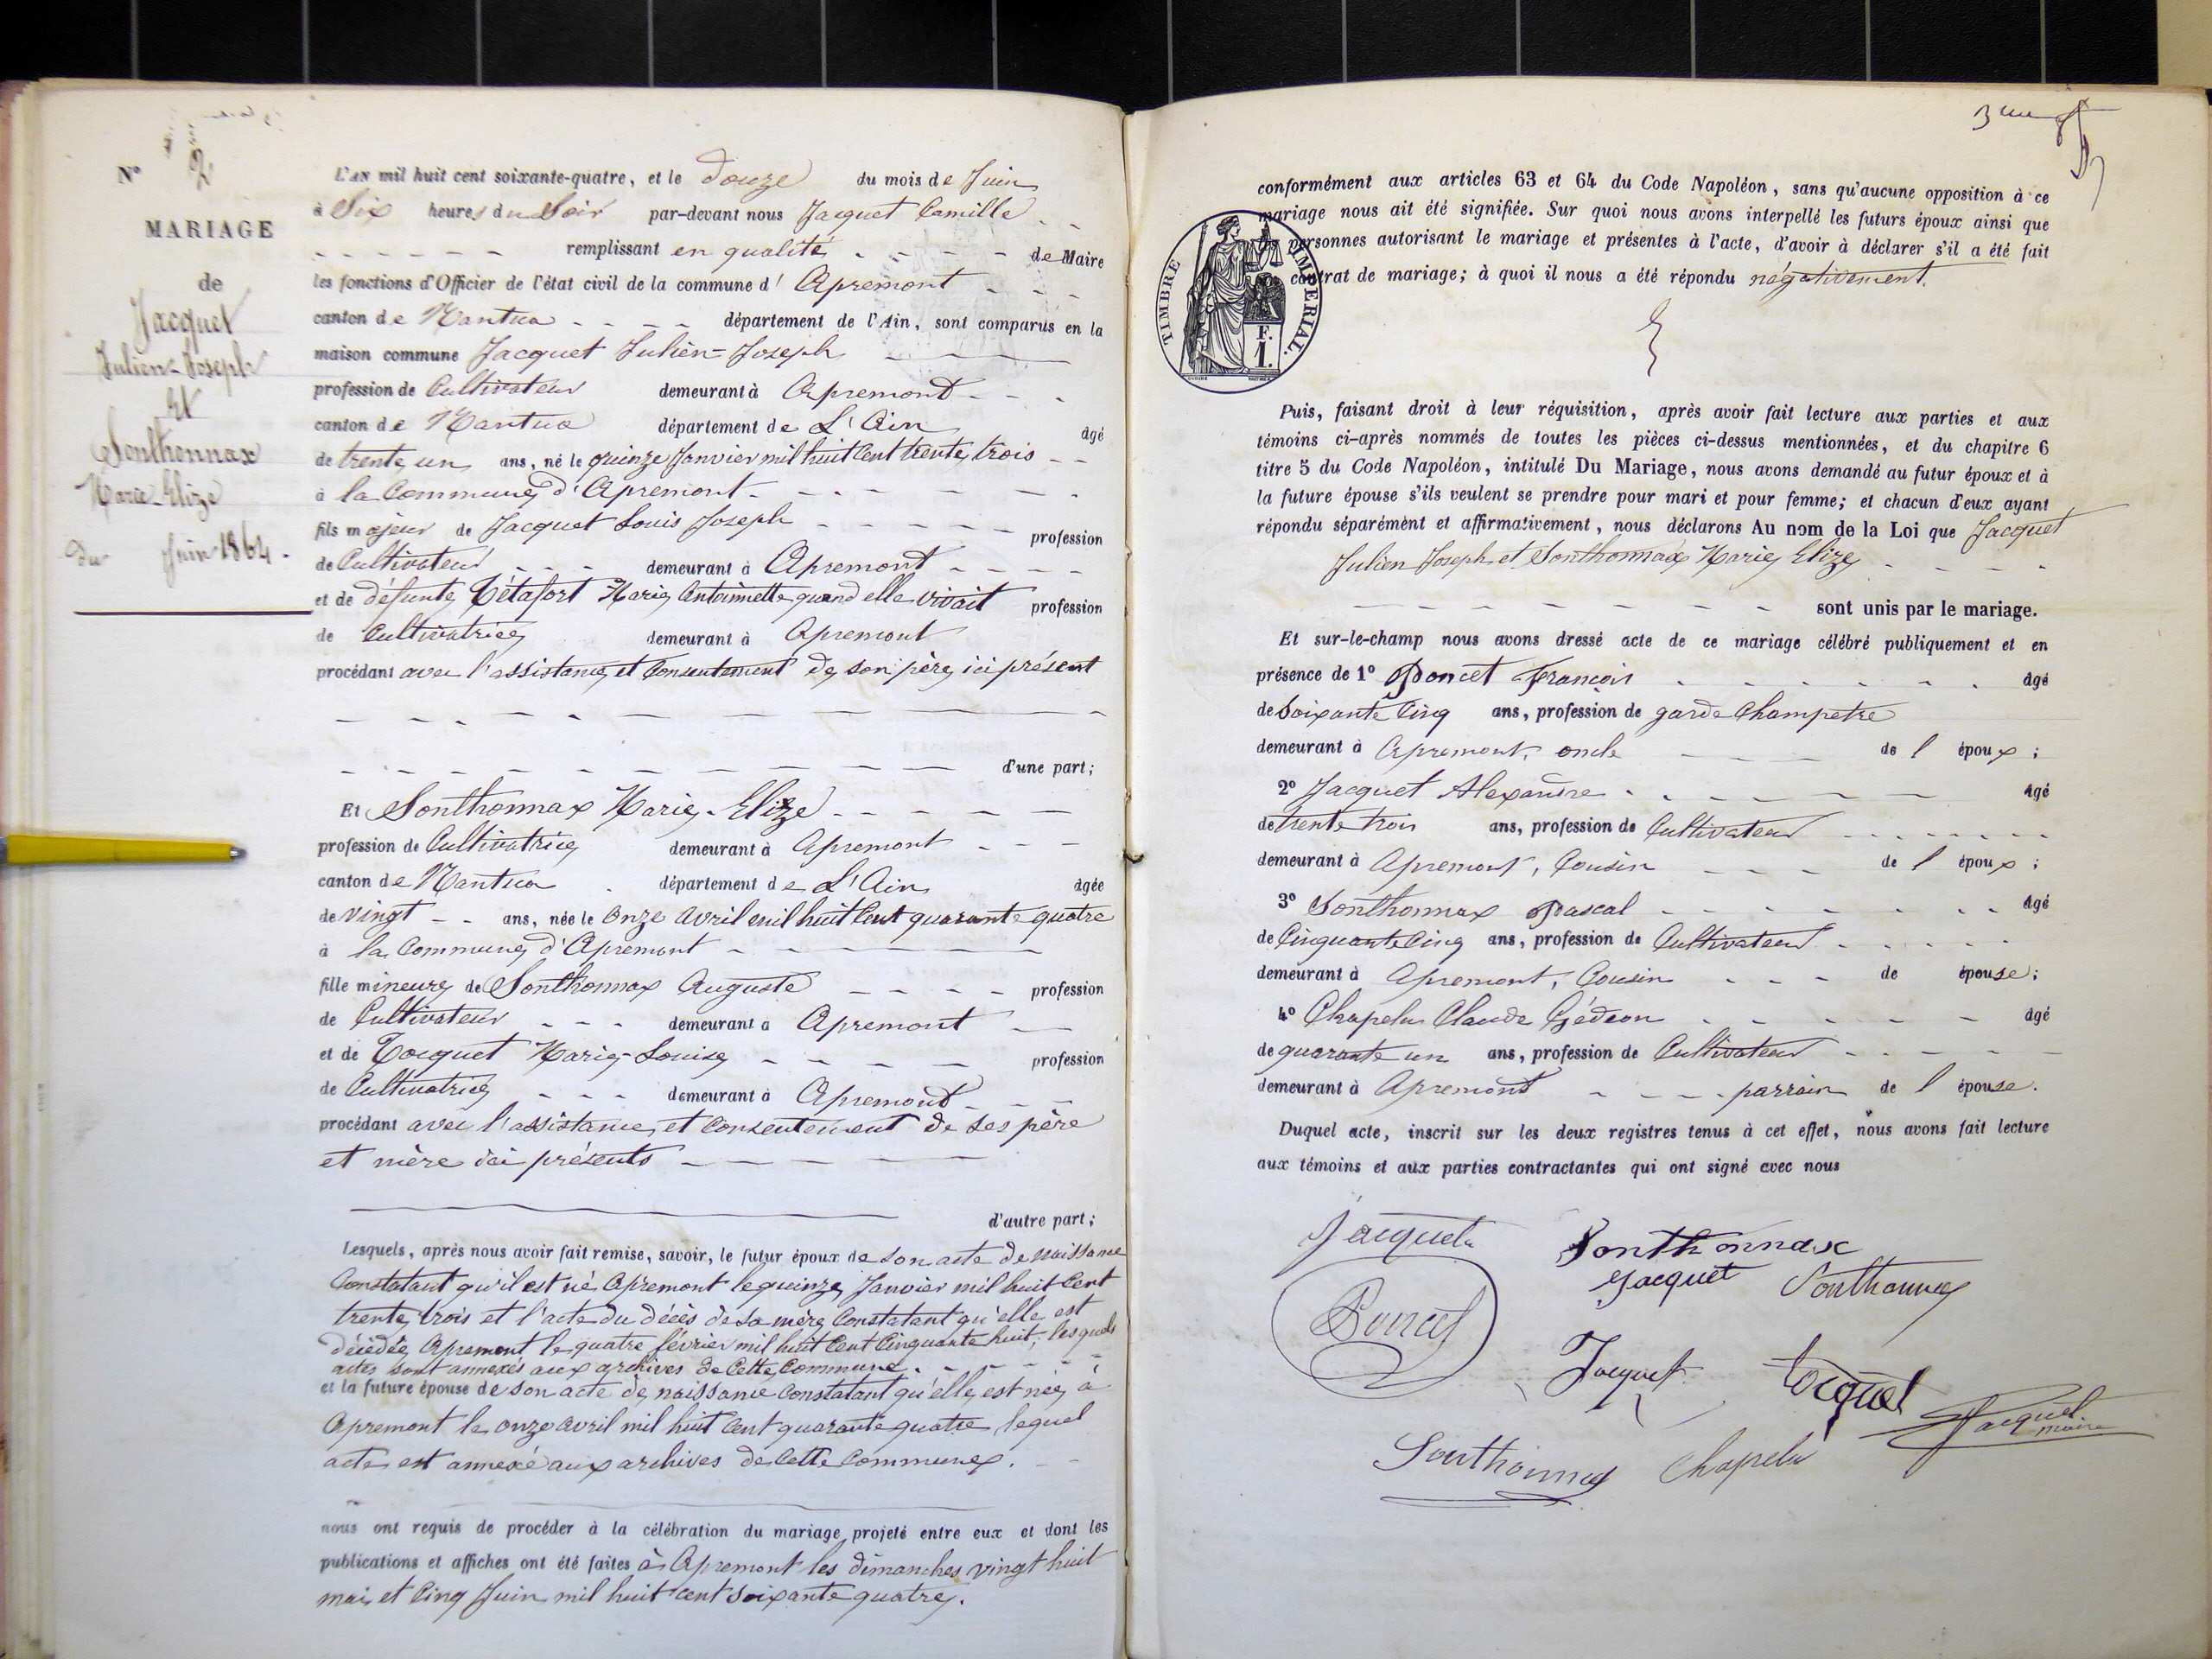 N° 2
MARIAGE
de
Jacquet
Julien-Joseph
et
Sonthonnax
Marie-Elize
du Juin 1864.
L'AN mil huit cent soixante-quatre, et le douze du mois de Juin
à Six heures du Soir par-devant nous Jacquet Camille
remplissant en qualité de Maire
les fonctions d'Officier de l'état civil de la commune d'Apremont
canton de Nantua département de l'Ain, sont comparus en la
maison commune Jacquet Julien-Joseph
profession de Cultivateur demeurant à Apremont
canton de Nantua département de L'Ain âgé
de trente un ans, né le quinze Janvier mil huit Cent trente trois
à la Commune d'Apremont
fils majeur de Jacquet Louis Joseph profession
de Cultivateur demeurant à Apremont
et de défunte Tétafort Marie Antoinette quand elle vivait profession
de Cultivatrice demeurant à Apremont
procédant avec l'assistance et Consentement de son père ici présent
d'une part;
Et Sonthonnax Marie-Elize
profession de Cultivatrice demeurant à Apremont
canton de Nantua département de L'Ain âgée
de vingt ans, née le onze avril mil huit Cent quarante quatre
à la Commune d'Apremont
fille mineure de Sonthonnax Auguste profession
de Cultivateur demeurant à Apremont
et de Tocquet Marie-Louise profession
de Cultivatrice demeurant à Apremont
procédant avec l'assistance et Consentement de ses père
et mère ici présents
d'autre part;
Lesquels, après nous avoir fait remise, savoir, le futur époux de son acte de naissance
Constatant qu'il est né Apremont le quinze Janvier mil huit Cent
trente trois et l'acte du décès de sa mère Constatant qu'elle est
décédée Apremont le quatre février mil huit Cent Cinquante huit, lesquels
actes sont annexés aux archives de Cette Commune.
et la future épouse de son acte de naissance Constatant qu'elle est née à
Apremont le onze avril mil huit Cent quarante quatre lequel
acte est annexé aux archives de Cette Commune.
nous ont requis de procéder à la célébration du mariage projeté entre eux et dont les
publications et affiches ont été faites à Apremont les dimanches vingt huit
mai et Cinq Juin mil huit cent soixante quatre.
conformément aux articles 63 et 64 du Code Napoléon, sans qu'aucune opposition à ce
mariage nous ait été signifiée. Sur quoi nous avons interpellé les futurs époux ainsi que
personnes autorisant le mariage et présentes à l'acte, d'avoir à déclarer s'il a été fait
contrat de mariage; à quoi il nous a été répondu négativement.
TIMBRE IMPERIAL.
1 F.
Puis, faisant droit à leur réquisition, après avoir fait lecture aux parties et aux
témoins ci-après nommés de toutes les pièces ci-dessus mentionnées, et du chapitre 6
titre 5 du Code Napoléon, intitulé Du Mariage, nous avons demandé au futur époux et à
la future épouse s'ils veulent se prendre pour mari et pour femme; et chacun d'eux ayant
répondu séparément et affirmativement, nous déclarons Au nom de la Loi que Jacquet
Julien Joseph et Sonthonnax Marie Elize
sont unis par le mariage.
Et sur-le-champ nous avons dressé acte de ce mariage célébré publiquement et en
présence de 1° Poncet François âgé
de Soixante Cinq ans, profession de garde Champetre
demeurant à Apremont, oncle de l'époux;
2° Jacquet Alexandre âgé
de trente trois ans, profession de Cultivateur
demeurant à Apremont, Cousin de l'époux;
3° Sonthonnax Pascal âgé
de Cinquante Cinq ans, profession de Cultivateur
demeurant à Apremont, Cousin de épouse;
4° Chapelu Claude Gédeon âgé
de quarante un ans, profession de Cultivateur
demeurant à Apremont parrain de l'épouse.
Duquel acte, inscrit sur les deux registres tenus à cet effet, nous avons fait lecture
aux témoins et aux parties contractantes qui ont signé avec nous
Jacquet Sonthonnax
Jacquet Sonthonnax
Poncet
Jacquet Tocquet
Jacquet maire
Sonthonnax Chapelu